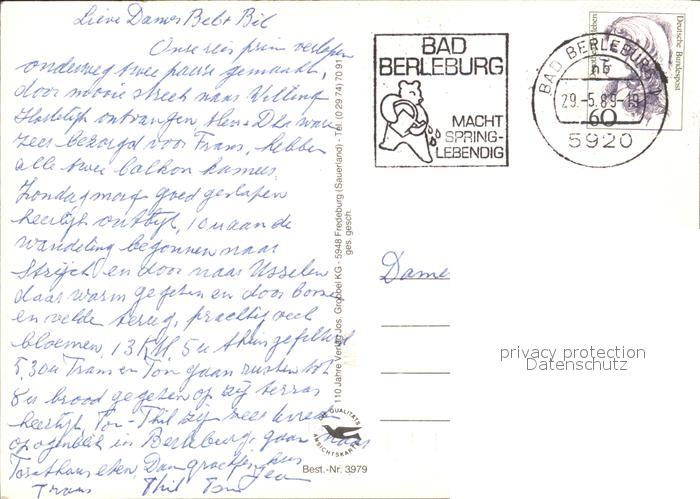 Lieve Dames Bels + Bil
Onze reis prima verlopen
onderweg twee pauze gemaakt,
door mooie streek naar Villing
Hartelijk ontvangen
zeer bezorgd voor Frans, hebben
alle twee balkon kamers
Zondagmorg goed geslapen
heerlijk ontbijt, 10 u aan de
wandeling begonnen naar
en door naar Usseln
daar warm gegeten en door bossen
en velden terug, prachtig veel
bloemen, 13 KM, 5 u thuis
5.30 u Frans en Ton gaan rusten tot
8 u brood gegeten op zij terras
heerlijk, Ton - Thil zij
ogenblik in Berleburg, gaan naar
eten. Dan
Frans Thil Ton
BAD
BERLEBURG
MACHT
SPRING-
LEBENDIG
BAD BERLEBURG 1
nb
29.-5.89-19
60
5920
Deutsche Bundespost
Dame
privacy protection
Datenschutz
110 Jahre Verlag Jos. Grobbel KG - 5948 Fredeburg (Sauerland) - Tel. (0 29 74) 70 91
ges. gesch.
QUALITÄTS
ANSICHTSKARTE
Best.-Nr. 3979